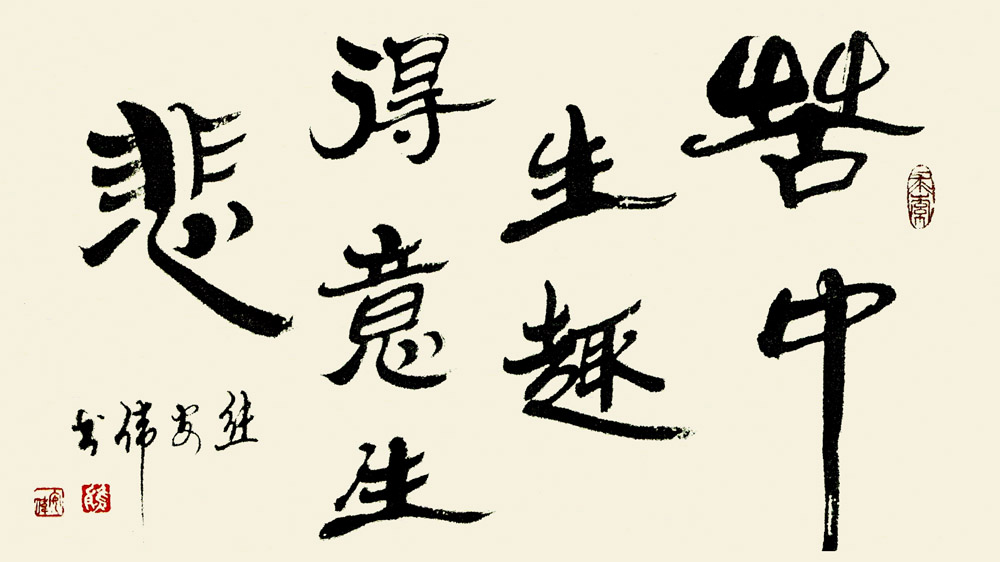 苦中
生趣
得意生
悲
熊安伟书